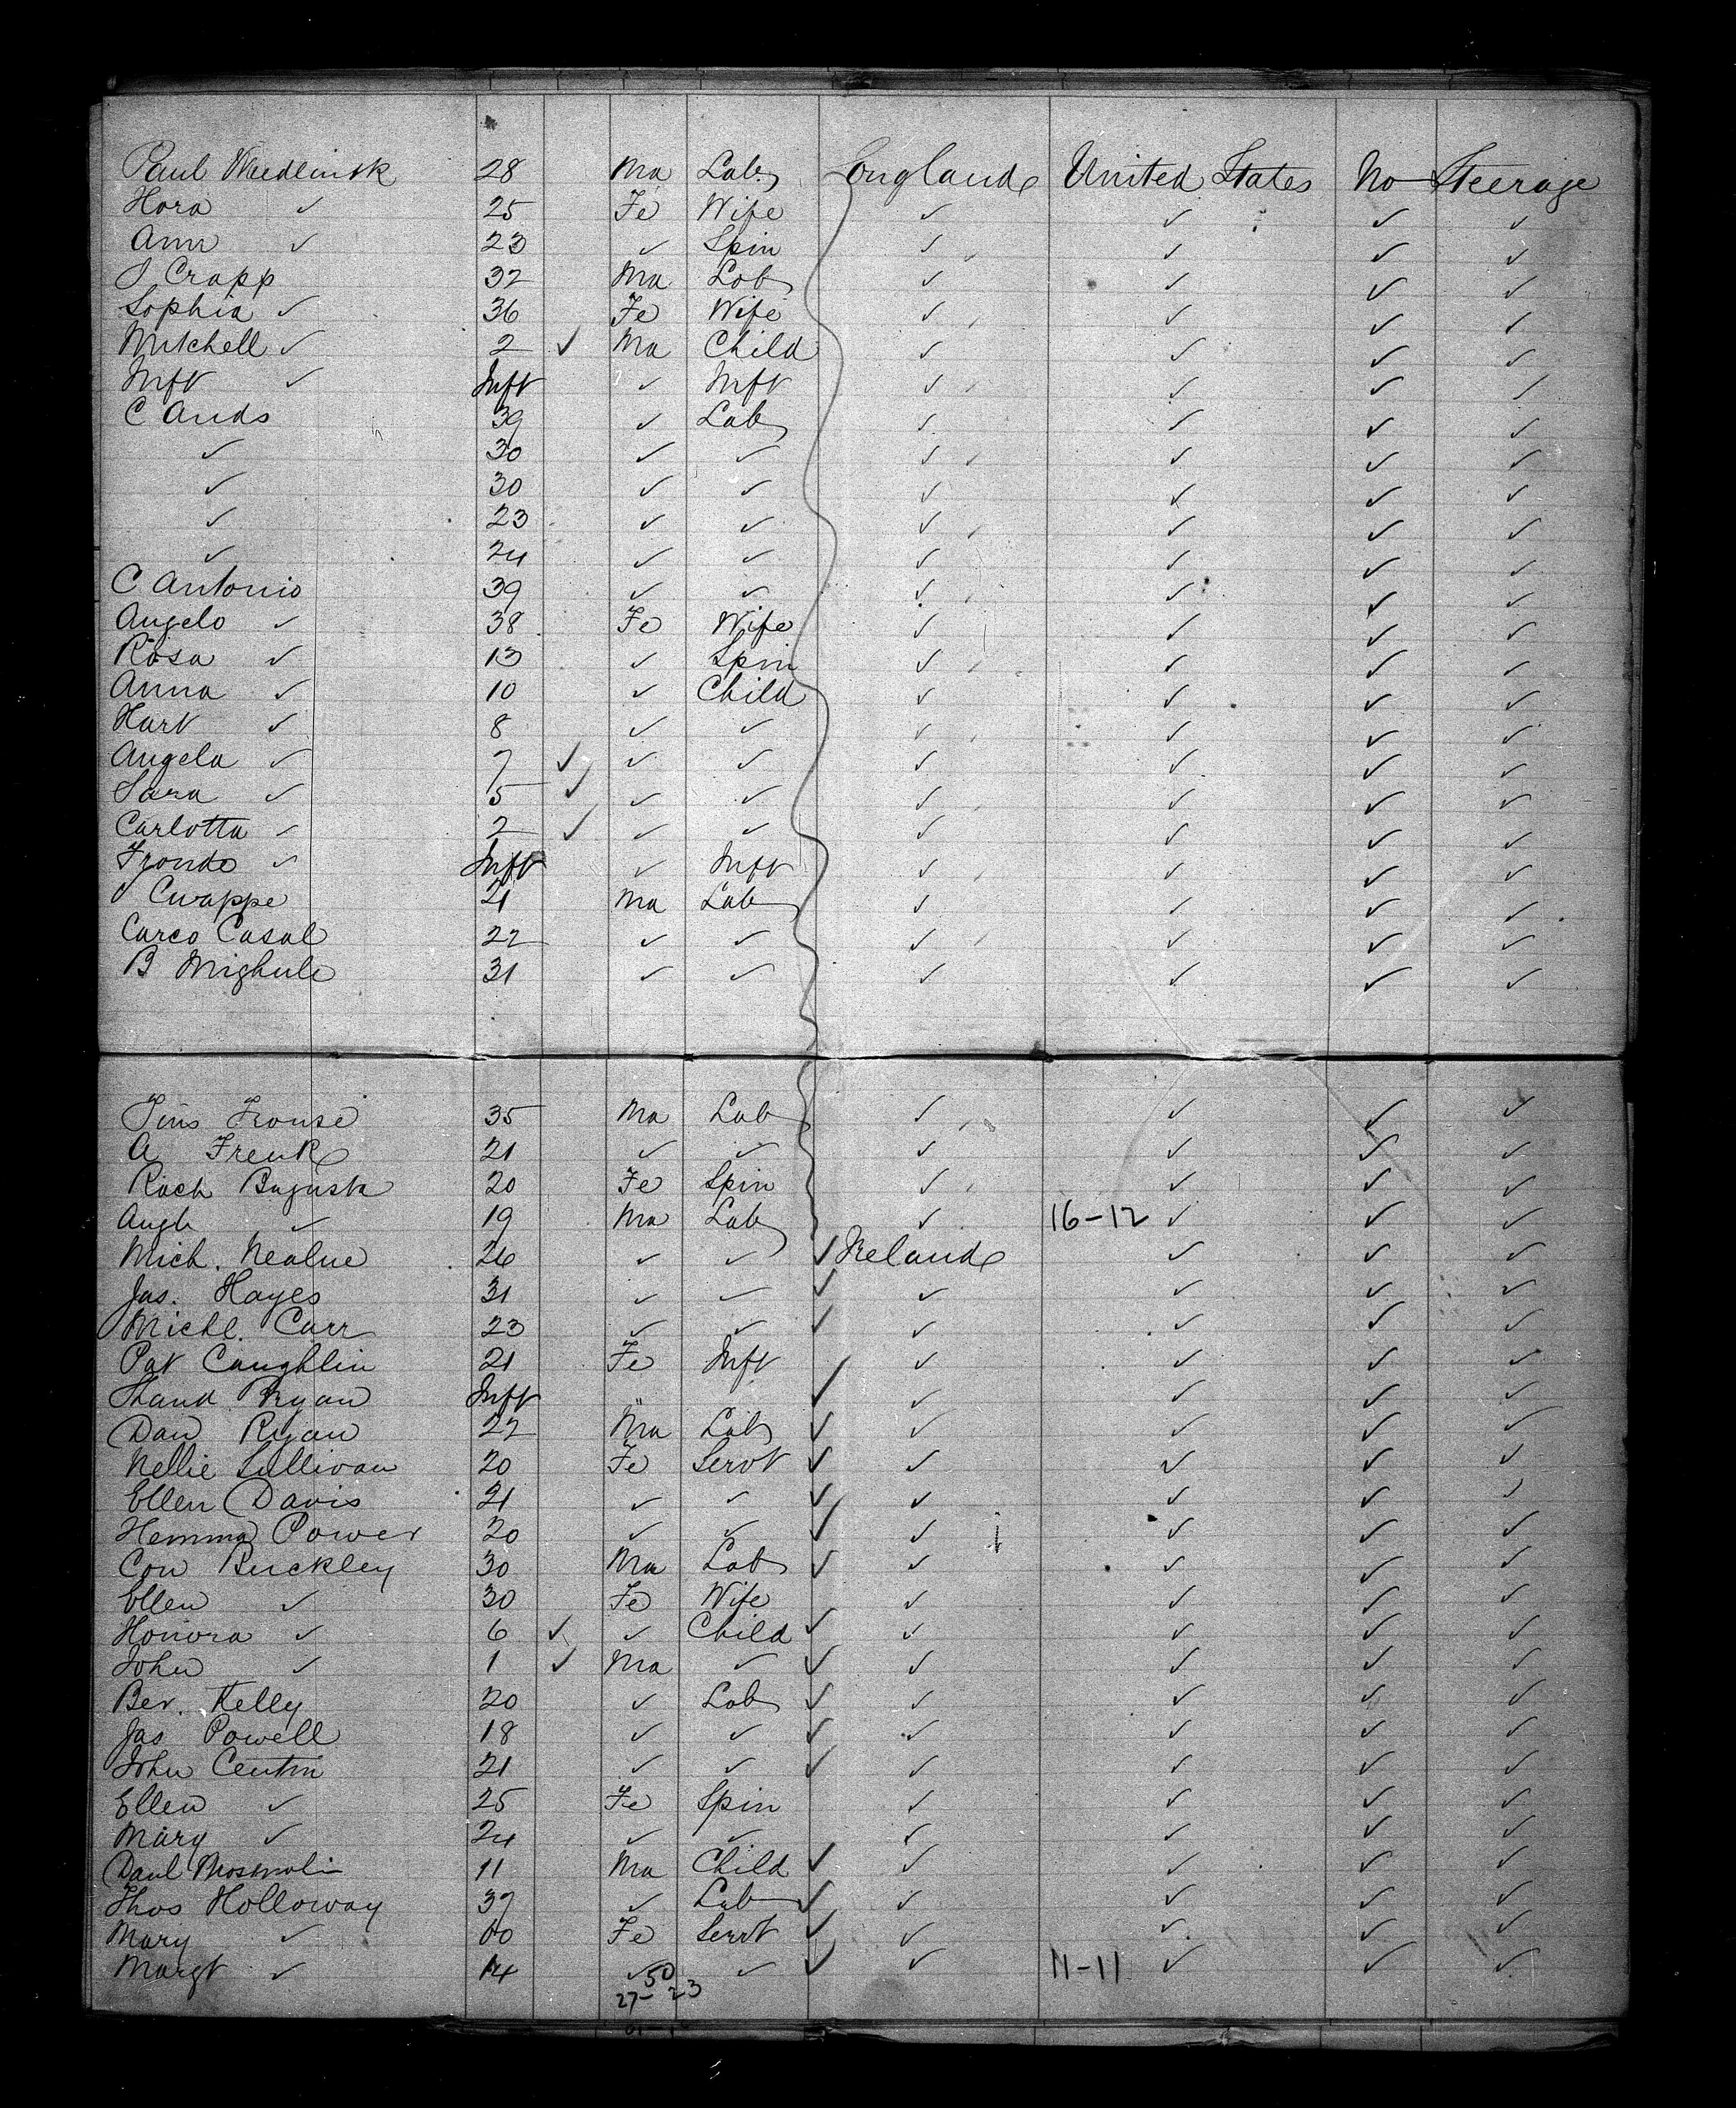 Paul Wuedlinsk 28 Ma Lab England United States No Steerage
Hora ✓ 25 Fe Wife ✓ ✓ ✓ ✓
Ann ✓ 23 ✓ Spin ✓ ✓ ✓ ✓
J Crapp 32 Ma Lab ✓ ✓ ✓ ✓
Sophia ✓ 36 Fe Wife ✓ ✓ ✓ ✓
Mitchell ✓ 2 ✓ Ma Child ✓ ✓ ✓ ✓
Inft ✓ Inft ✓ Inft ✓ ✓ ✓ ✓
C Ands 39 ✓ Lab ✓ ✓ ✓ ✓
✓ 30 ✓ ✓ ✓ ✓ ✓ ✓
✓ 30 ✓ ✓ ✓ ✓ ✓ ✓
✓ 23 ✓ ✓ ✓ ✓ ✓ ✓
✓ 24 ✓ ✓ ✓ ✓ ✓ ✓
C Antonio 39 ✓ ✓ ✓ ✓ ✓ ✓
Angelo ✓ 38 Fe Wife ✓ ✓ ✓ ✓
Rosa ✓ 13 ✓ Spin ✓ ✓ ✓ ✓
Anna ✓ 10 ✓ Child ✓ ✓ ✓ ✓
Hart ✓ 8 ✓ ✓ ✓ ✓ ✓ ✓
Angela ✓ 7 ✓ ✓ ✓ ✓ ✓ ✓ ✓
Sara ✓ 5 ✓ ✓ ✓ ✓ ✓ ✓ ✓
Carlotta ✓ 2 ✓ ✓ ✓ ✓ ✓ ✓ ✓
Frondo ✓ Inft ✓ Inft ✓ ✓ ✓ ✓
J Cuappe 21 Ma Lab ✓ ✓ ✓ ✓
Carco Casal 22 ✓ ✓ ✓ ✓ ✓ ✓
B Mighule 31 ✓ ✓ ✓ ✓ ✓ ✓
Jins Fronse 35 Ma Lab ✓ ✓ ✓ ✓
A Frenk 21 ✓ ✓ ✓ ✓ ✓ ✓
Rach Bagusta 20 Fe Spin ✓ ✓ ✓ ✓
Augh ✓ 19 Ma Lab ✓ 16-12 ✓ ✓ ✓
Mich. Nealue 26 ✓ ✓ ✓ Ireland ✓ ✓ ✓
Jas. Hayes 31 ✓ ✓ ✓ ✓ ✓ ✓ ✓
Michl. Carr 23 ✓ ✓ ✓ ✓ ✓ ✓ ✓
Pat Caughlin 21 Fe Inft ✓ ✓ ✓ ✓ ✓
Hand Ryan Inft " ✓ ✓ ✓ ✓ ✓
Dan Ryan 22 Ma Lab ✓ ✓ ✓ ✓ ✓
Nellie Sullivan 20 Fe Servt ✓ ✓ ✓ ✓ ✓
Ellen Davis 21 ✓ ✓ ✓ ✓ ✓ ✓ ✓
Hemma Power 20 ✓ ✓ ✓ ✓ ✓ ✓ ✓
Con Buckley 30 Ma Lab ✓ ✓ ✓ ✓ ✓
Ellen ✓ 30 Fe Wife ✓ ✓ ✓ ✓
Honora ✓ 6 ✓ ✓ Child ✓ ✓ ✓ ✓ ✓
John ✓ 1 ✓ Ma ✓ ✓ ✓ ✓ ✓ ✓
Ber. Kelly 20 ✓ Lab ✓ ✓ ✓ ✓ ✓
Jas Powell 18 ✓ ✓ ✓ ✓ ✓ ✓ ✓
John Centin 21 ✓ ✓ ✓ ✓ ✓ ✓ ✓
Ellen ✓ 25 Fe Spin ✓ ✓ ✓ ✓
Mary ✓ 24 ✓ ✓ ✓ ✓ ✓ ✓
Danl Mosmolin 11 Ma Child ✓ ✓ ✓ ✓ ✓
Thos Holloway 37 ✓ Lab ✓ ✓ ✓ ✓ ✓
Mary ✓ 60 Fe Servt ✓ ✓ ✓ ✓ ✓
Margt ✓ 14 ✓ ✓ ✓ ✓ 11-11 ✓ ✓ ✓
50
27-23